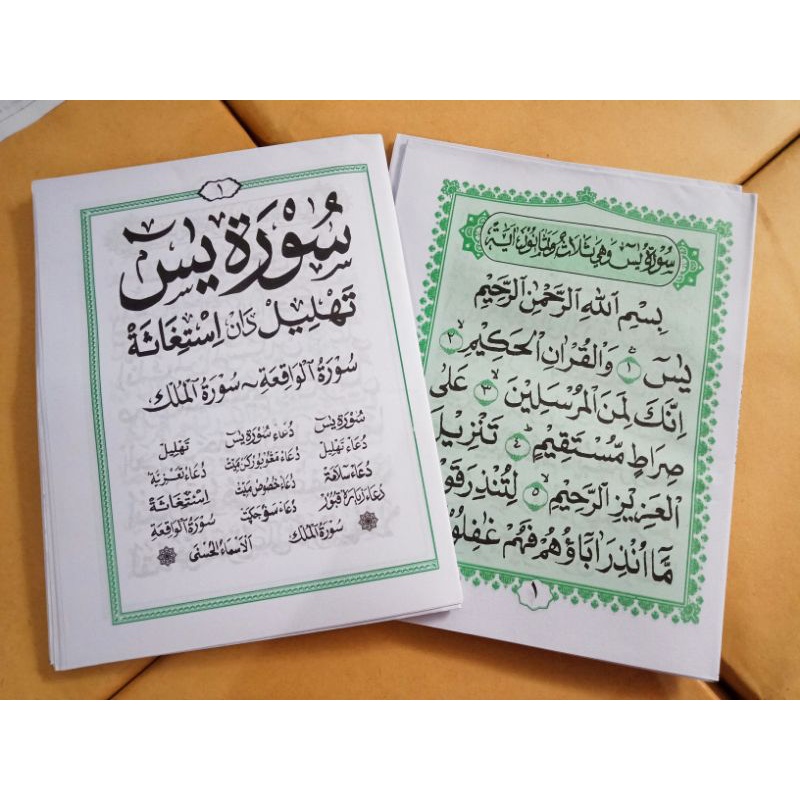 ١
سُوْرَة يٰسٓ
تَهْلِيْل دَانْ اِسْتِغَاثَةْ
سُوْرَةُ الْوَاقِعَة ~ سُوْرَةُ الْمُلْك
سُوْرَة يٰسٓ دُعَاء سُوْرَة يٰسٓ تَهْلِيْل
دُعَاء تَهْلِيْل دُعَاء مَڠُوْبُوْرْكَنْ مَيِّتْ دُعَاء تَعْزِيَّة
دُعَاء سَلَامَةْ دُعَاء خُصُوْص مَيِّتْ اِسْتِغَاثَةْ
دُعَاء زِيَارَة قُبُوْر دُعَاء سُوْرَةُ الْوَاقِعَة
سُوْرَةُ الْمُلْك اَلْاَسْمَاءُ الْحُسْنٰى
سُوْرَةُ يٰسٓ وَهِيَ ثَلَاثٌ وَثَمَانُوْنَ اٰيَةً
بِسْمِ اللّٰهِ الرَّحْمٰنِ الرَّحِيْمِ
يٰسٓ ۝١ وَالْقُرْاٰنِ الْحَكِيْمِ ۝٢
اِنَّكَ لَمِنَ الْمُرْسَلِيْنَ ۝٣ عَلٰى
صِرَاطٍ مُّسْتَقِيْمٍ ۝٤ تَنْزِيْلَ
الْعَزِيْزِ الرَّحِيْمِ ۝٥ لِتُنْذِرَ قَوْ
مًا مَّا اُنْذِرَ اٰبَاؤُهُمْ فَهُمْ غٰفِلُوْ
١